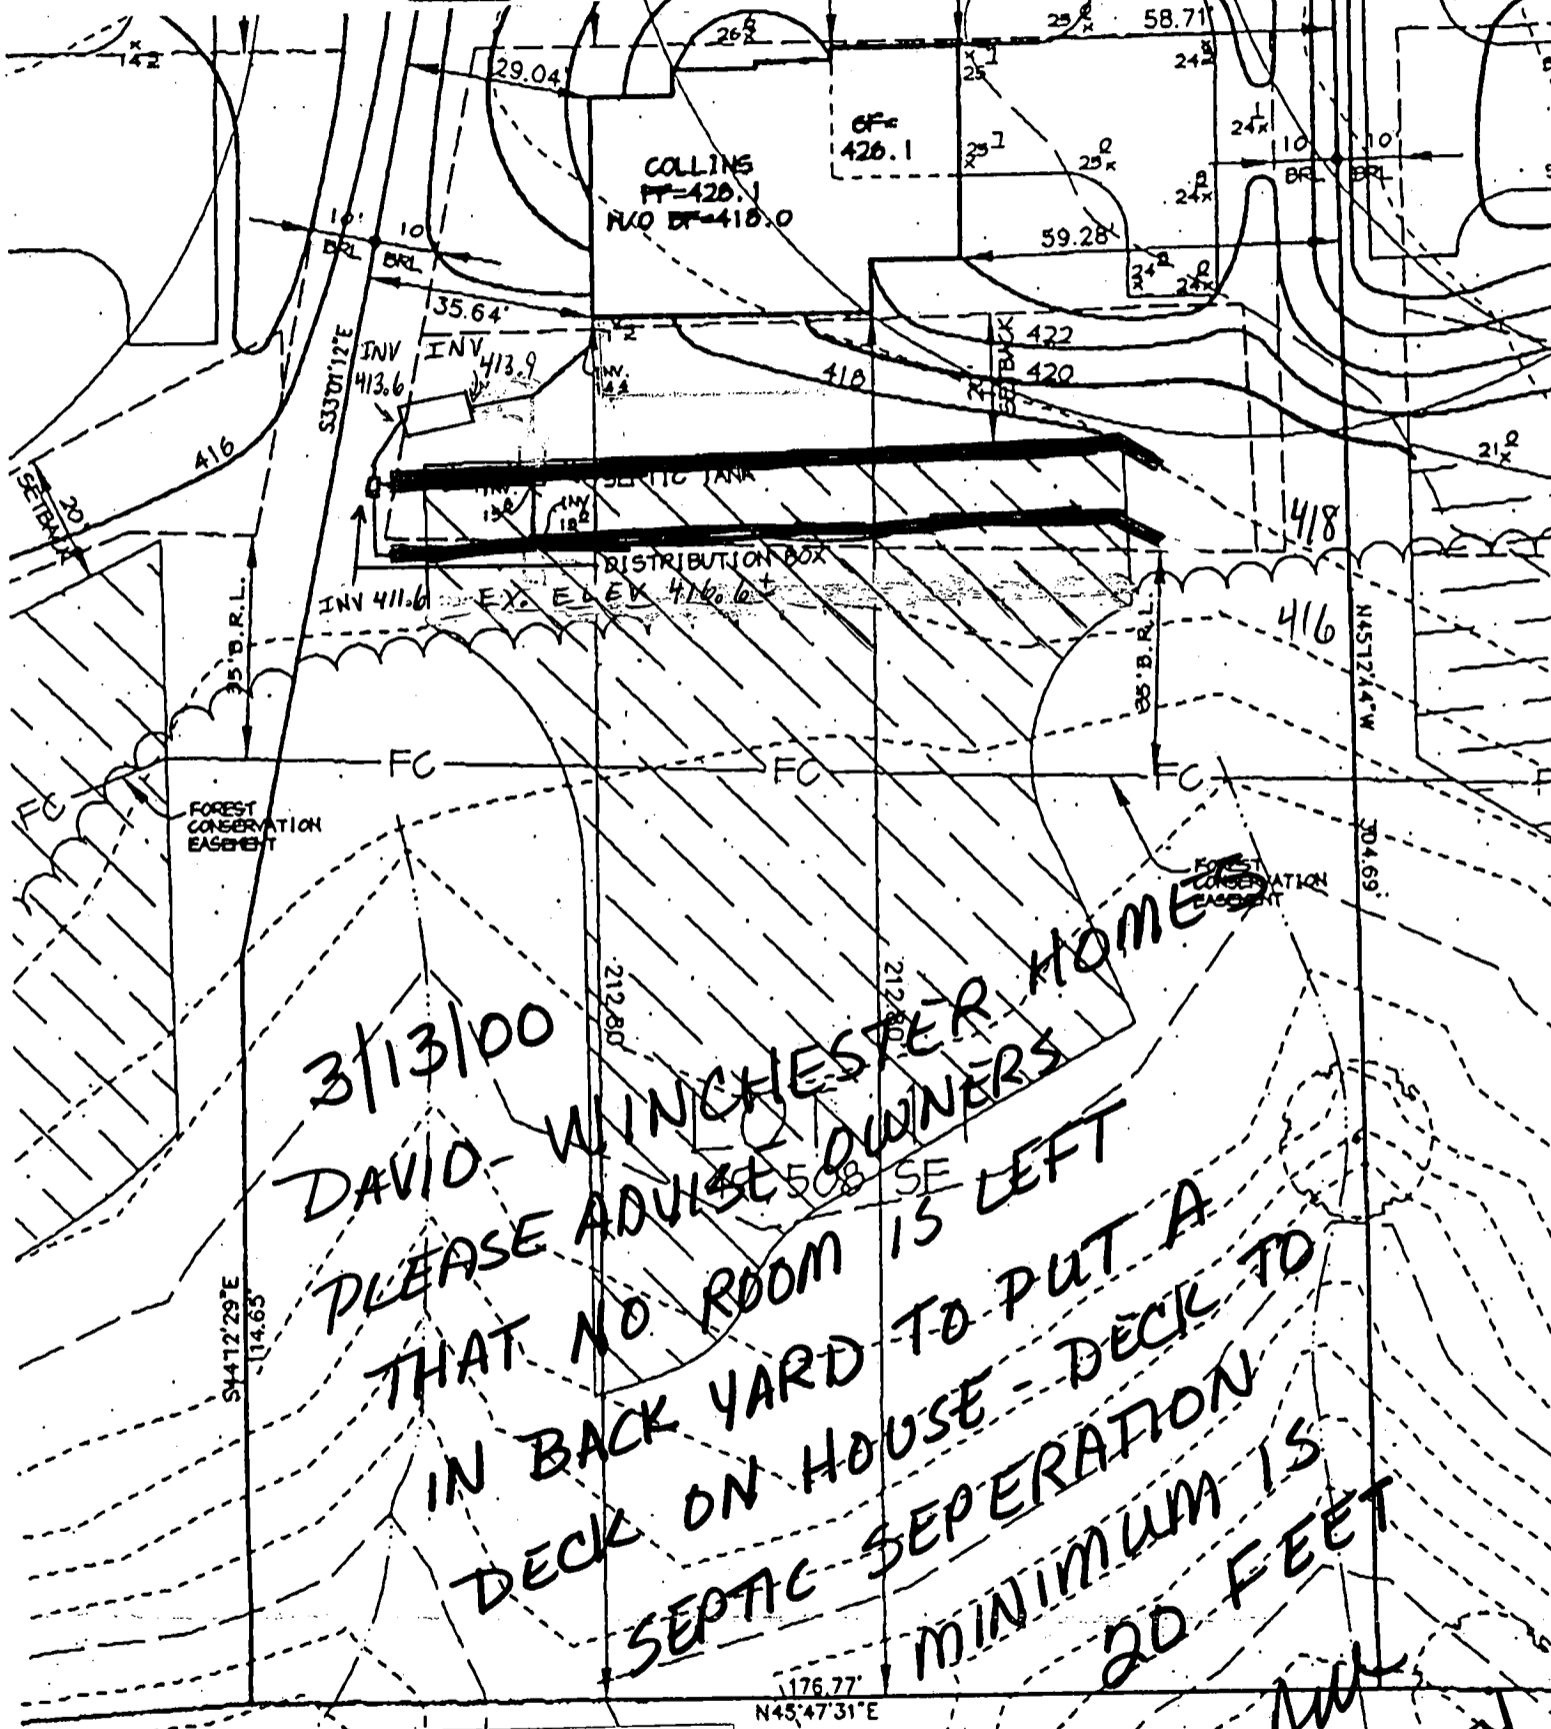 58.71'
29.04'
COLLINS
FF=428.1
W/O BF=418.0
GF=
426.1
10' 10
BRL BRL
10 10'
BRL BRL
59.28'
35.64'
S33°01'12"E
INV
413.6
INV
413.9
INV.
422
420
418
SETBACK
416
20'
SETBACK
SEPTIC TANK
INV.
INV
DISTRIBUTION BOX
INV 411.6
EX. ELEV 416.6±
418
416
35' B.R.L.
35' B.R.L.
FC FC FC FC
FOREST
CONSERVATION
EASEMENT
FOREST
CONSERVATION
EASEMENT
212.80
212.80
3/13/00
DAVID - WINCHESTER HOMES
PLEASE ADVISE OWNERS
THAT NO ROOM IS LEFT
IN BACK YARD TO PUT A
DECK ON HOUSE - DECK TO
SEPTIC SEPERATION
MINIMUM IS
20 FEET
S44°12'29"E
114.63'
176.77'
N45°47'31"E